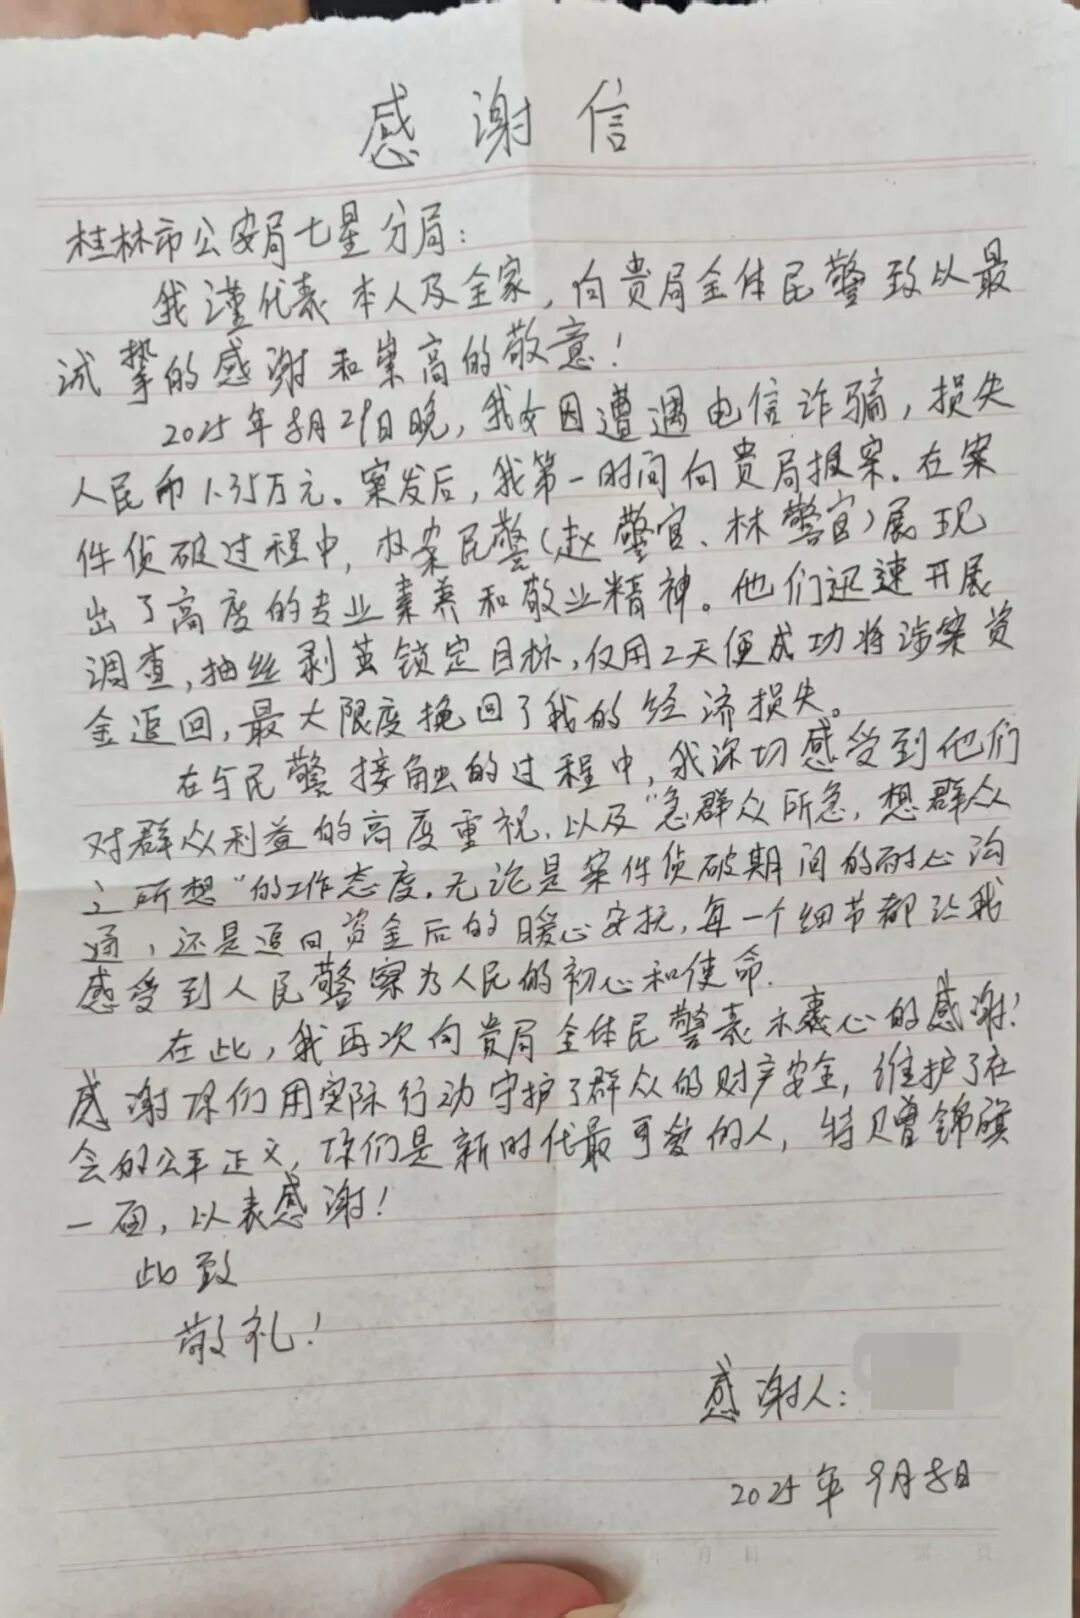 感谢信
桂林市公安局七星分局：
我谨代表本人及全家，向贵局全体民警致以最
诚挚的感谢和崇高的敬意！
2025年8月29日晚，我女因遭遇电信诈骗，损失
人民币1.35万元。案发后，我第一时间向贵局报案。在案
件侦破过程中，办案民警（赵警官、林警官）展现
出了高度的专业素养和敬业精神。他们迅速开展
调查，抽丝剥茧锁定目标，仅用2天便成功将涉案资
金追回，最大限度挽回了我的经济损失。
在与民警接触的过程中，我深切感受到他们
对群众利益的高度重视，以及“急群众所急，想群众
之所想”的工作态度。无论是案件侦破期间的耐心沟
通，还是追回资金后的暖心安抚，每一个细节都让我
感受到人民警察为人民的初心和使命.
在此，我再次向贵局全体民警表示衷心的感谢！
感谢你们用实际行动守护了群众的财产安全，维护了社
会的公平正义，你们是新时代最可爱的人，特赠锦旗
一面，以表感谢！
此致
敬礼！
感谢人：
2025年9月8日
年 月 日 第 页